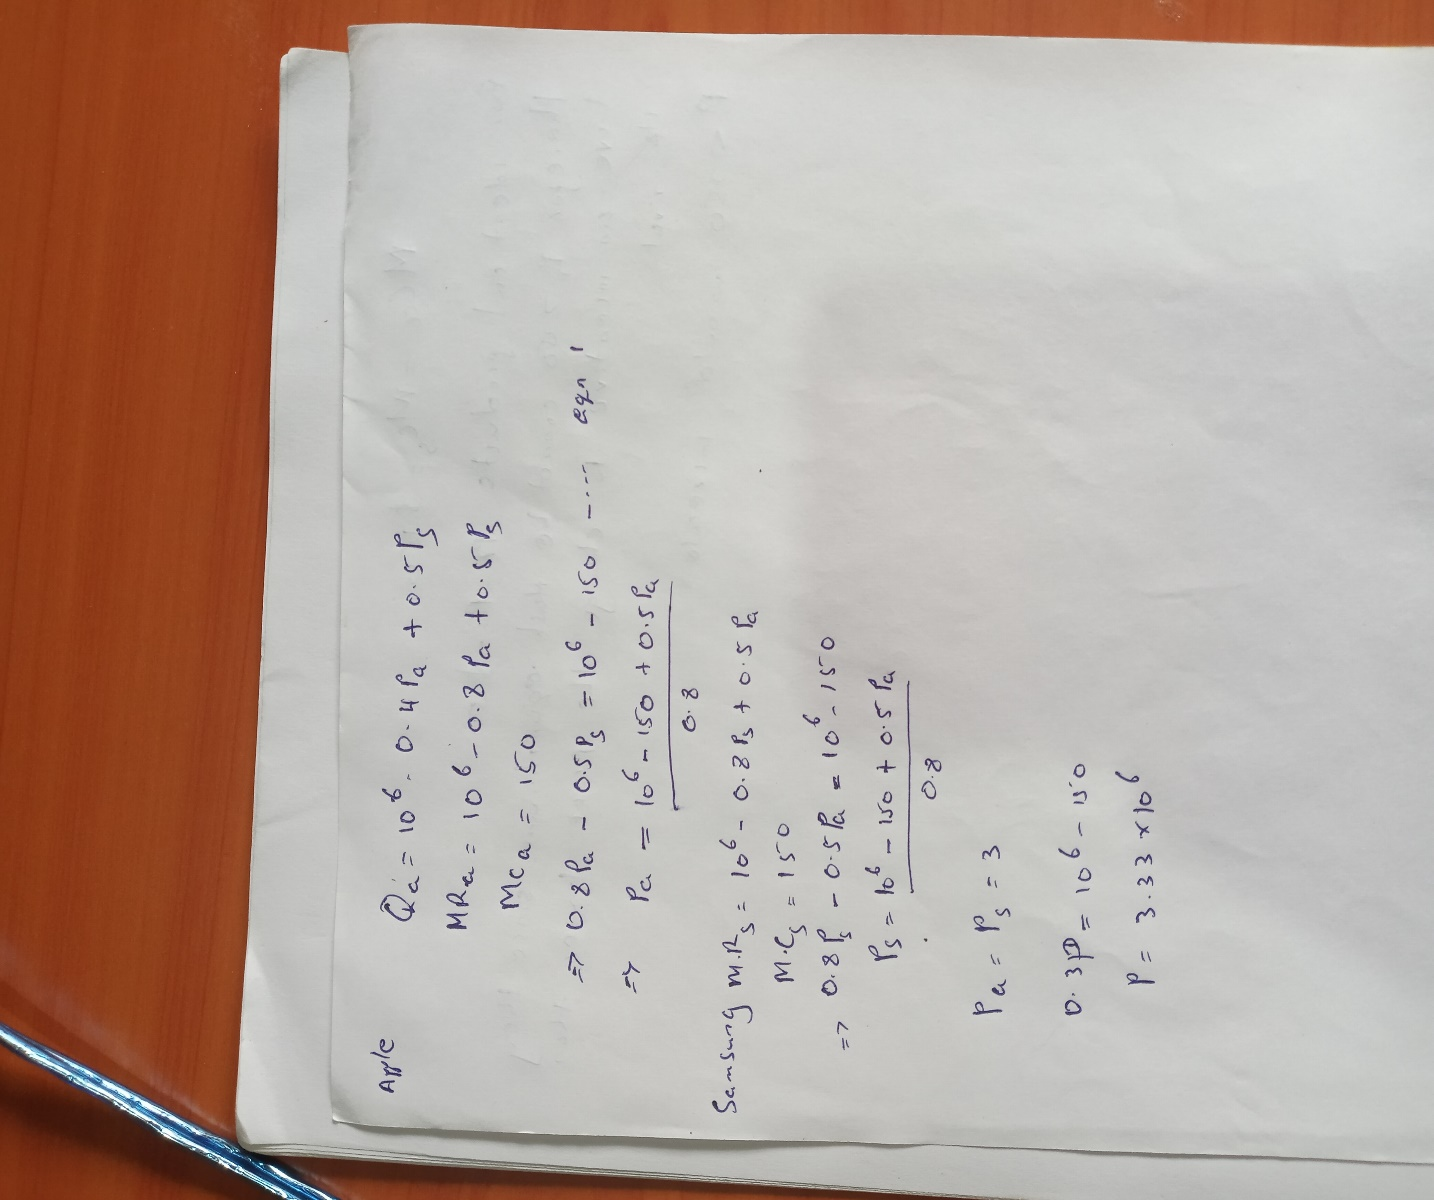 Apple Qa = 10⁶ - 0.4Pa + 0.5Ps
MRa = 10⁶ - 0.8Pa + 0.5Ps
Mca = 150
=> 0.8Pa - 0.5Ps = 10⁶ - 150 ---- eqn 1
=> Pa = 10⁶ - 150 + 0.5Pa
0.8
Samsung M.Rs = 10⁶ - 0.8Ps + 0.5Pa
M.Cs = 150
=> 0.8Ps - 0.5Pa = 10⁶ - 150
Ps = 10⁶ - 150 + 0.5Pa
0.8
Pa = Ps = 3
0.3P = 10⁶ - 150
P = 3.33 x 10⁶